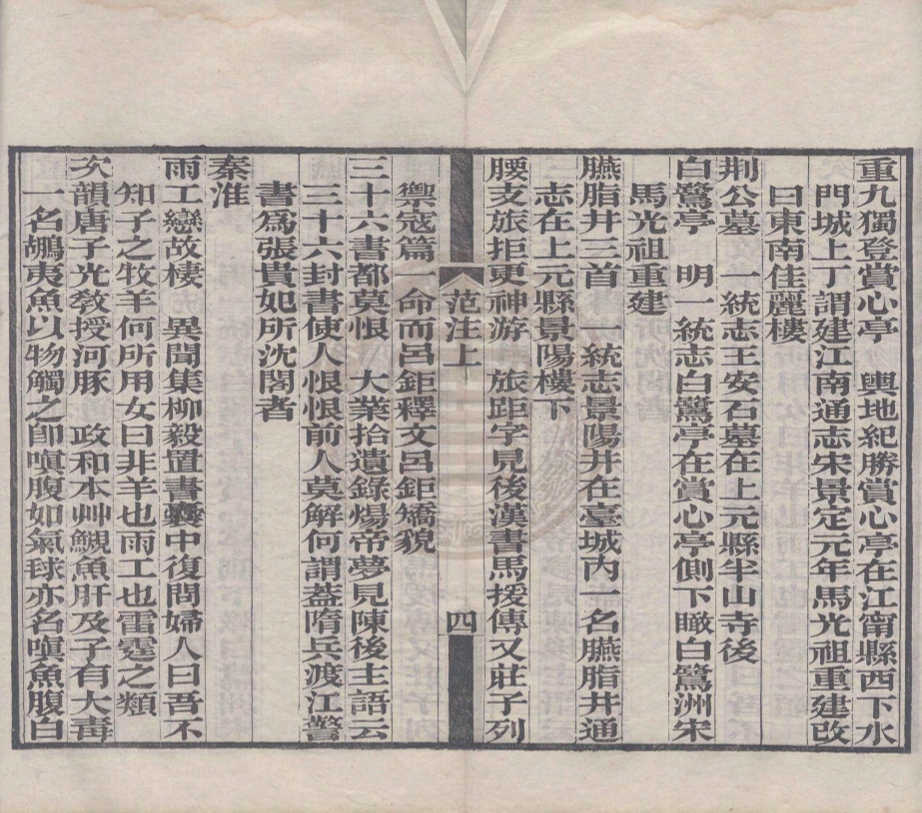 重九獨登賞心亭　輿地紀勝賞心亭在江甯縣西下水
門城上丁謂建江南通志宋景定元年馬光祖重建改
曰東南佳麗樓
荆公墓　一統志王安石墓在上元縣半山寺後
白鷺亭　明一統志白鷺亭在賞心亭側下瞰白鷺洲宋
馬光祖重建
臙脂井三首　一統志景陽井在臺城內一名臙脂井通
志在上元縣景陽樓下
腰支旅拒更神游　旅距字見後漢書馬援傳又莊子列
禦寇篇一命而呂鉅釋文呂鉅矯貌
范注上
四
三十六書都莫恨　大業拾遺錄煬帝夢見陳後主語云
三十六封書使人恨恨前人莫解何謂葢隋兵渡江警
書爲張貴妃所沈閣者
秦淮
雨工戀故棲　異聞集柳毅置書囊中復問婦人曰吾不
知子之牧羊何所用女曰非羊也雨工也雷霆之類
次韻唐子光敎授河豚　政和本艸鯢魚肝及子有大毒
一名鶘夷魚以物觸之卽嗔腹如氣球亦名嗔魚腹白